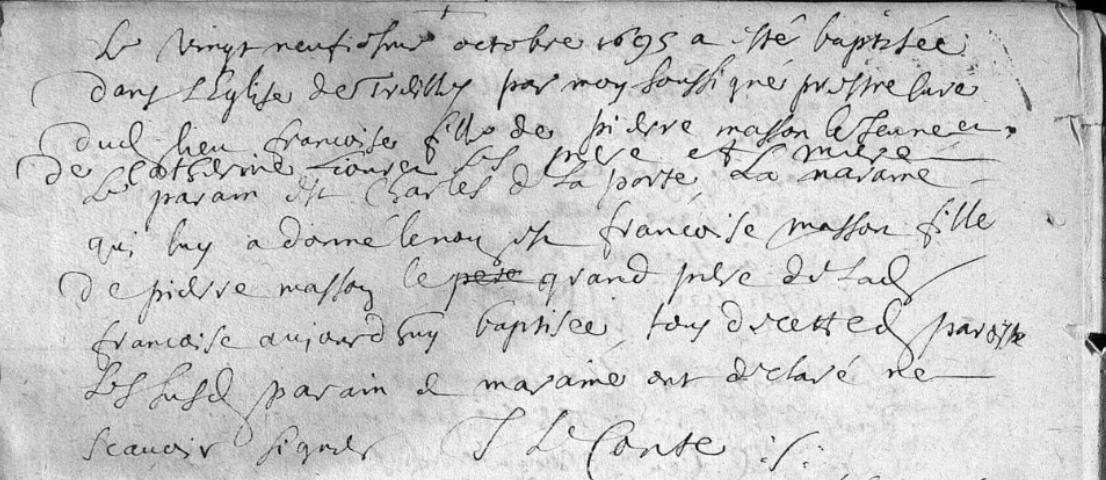 Le vingt neufiesme octobre 1695 a esté baptisée
dans l'Eglise de par moy soussigné prestre curé
dud lieu francoise fille de pierre masson le Jeune et
de Catherine ses pere et La mere
Le parain est Charles de La porte, La maraine
qui luy a donné le nom est francoise masson fille
De pierre masson le pere grand pere de Lad
francoise aujourd huy baptisée, tous de cette d paroisse
Les susd parain & maraine ont declaré ne
scavoir signer J Le Conte